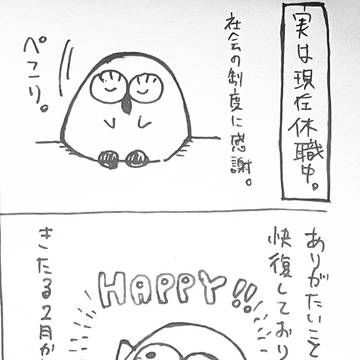 実は現在休職中。
社会の制度に感謝。
ぺこり。
ありがたいこと
快復しており
HAPPY!!
きたる2月か